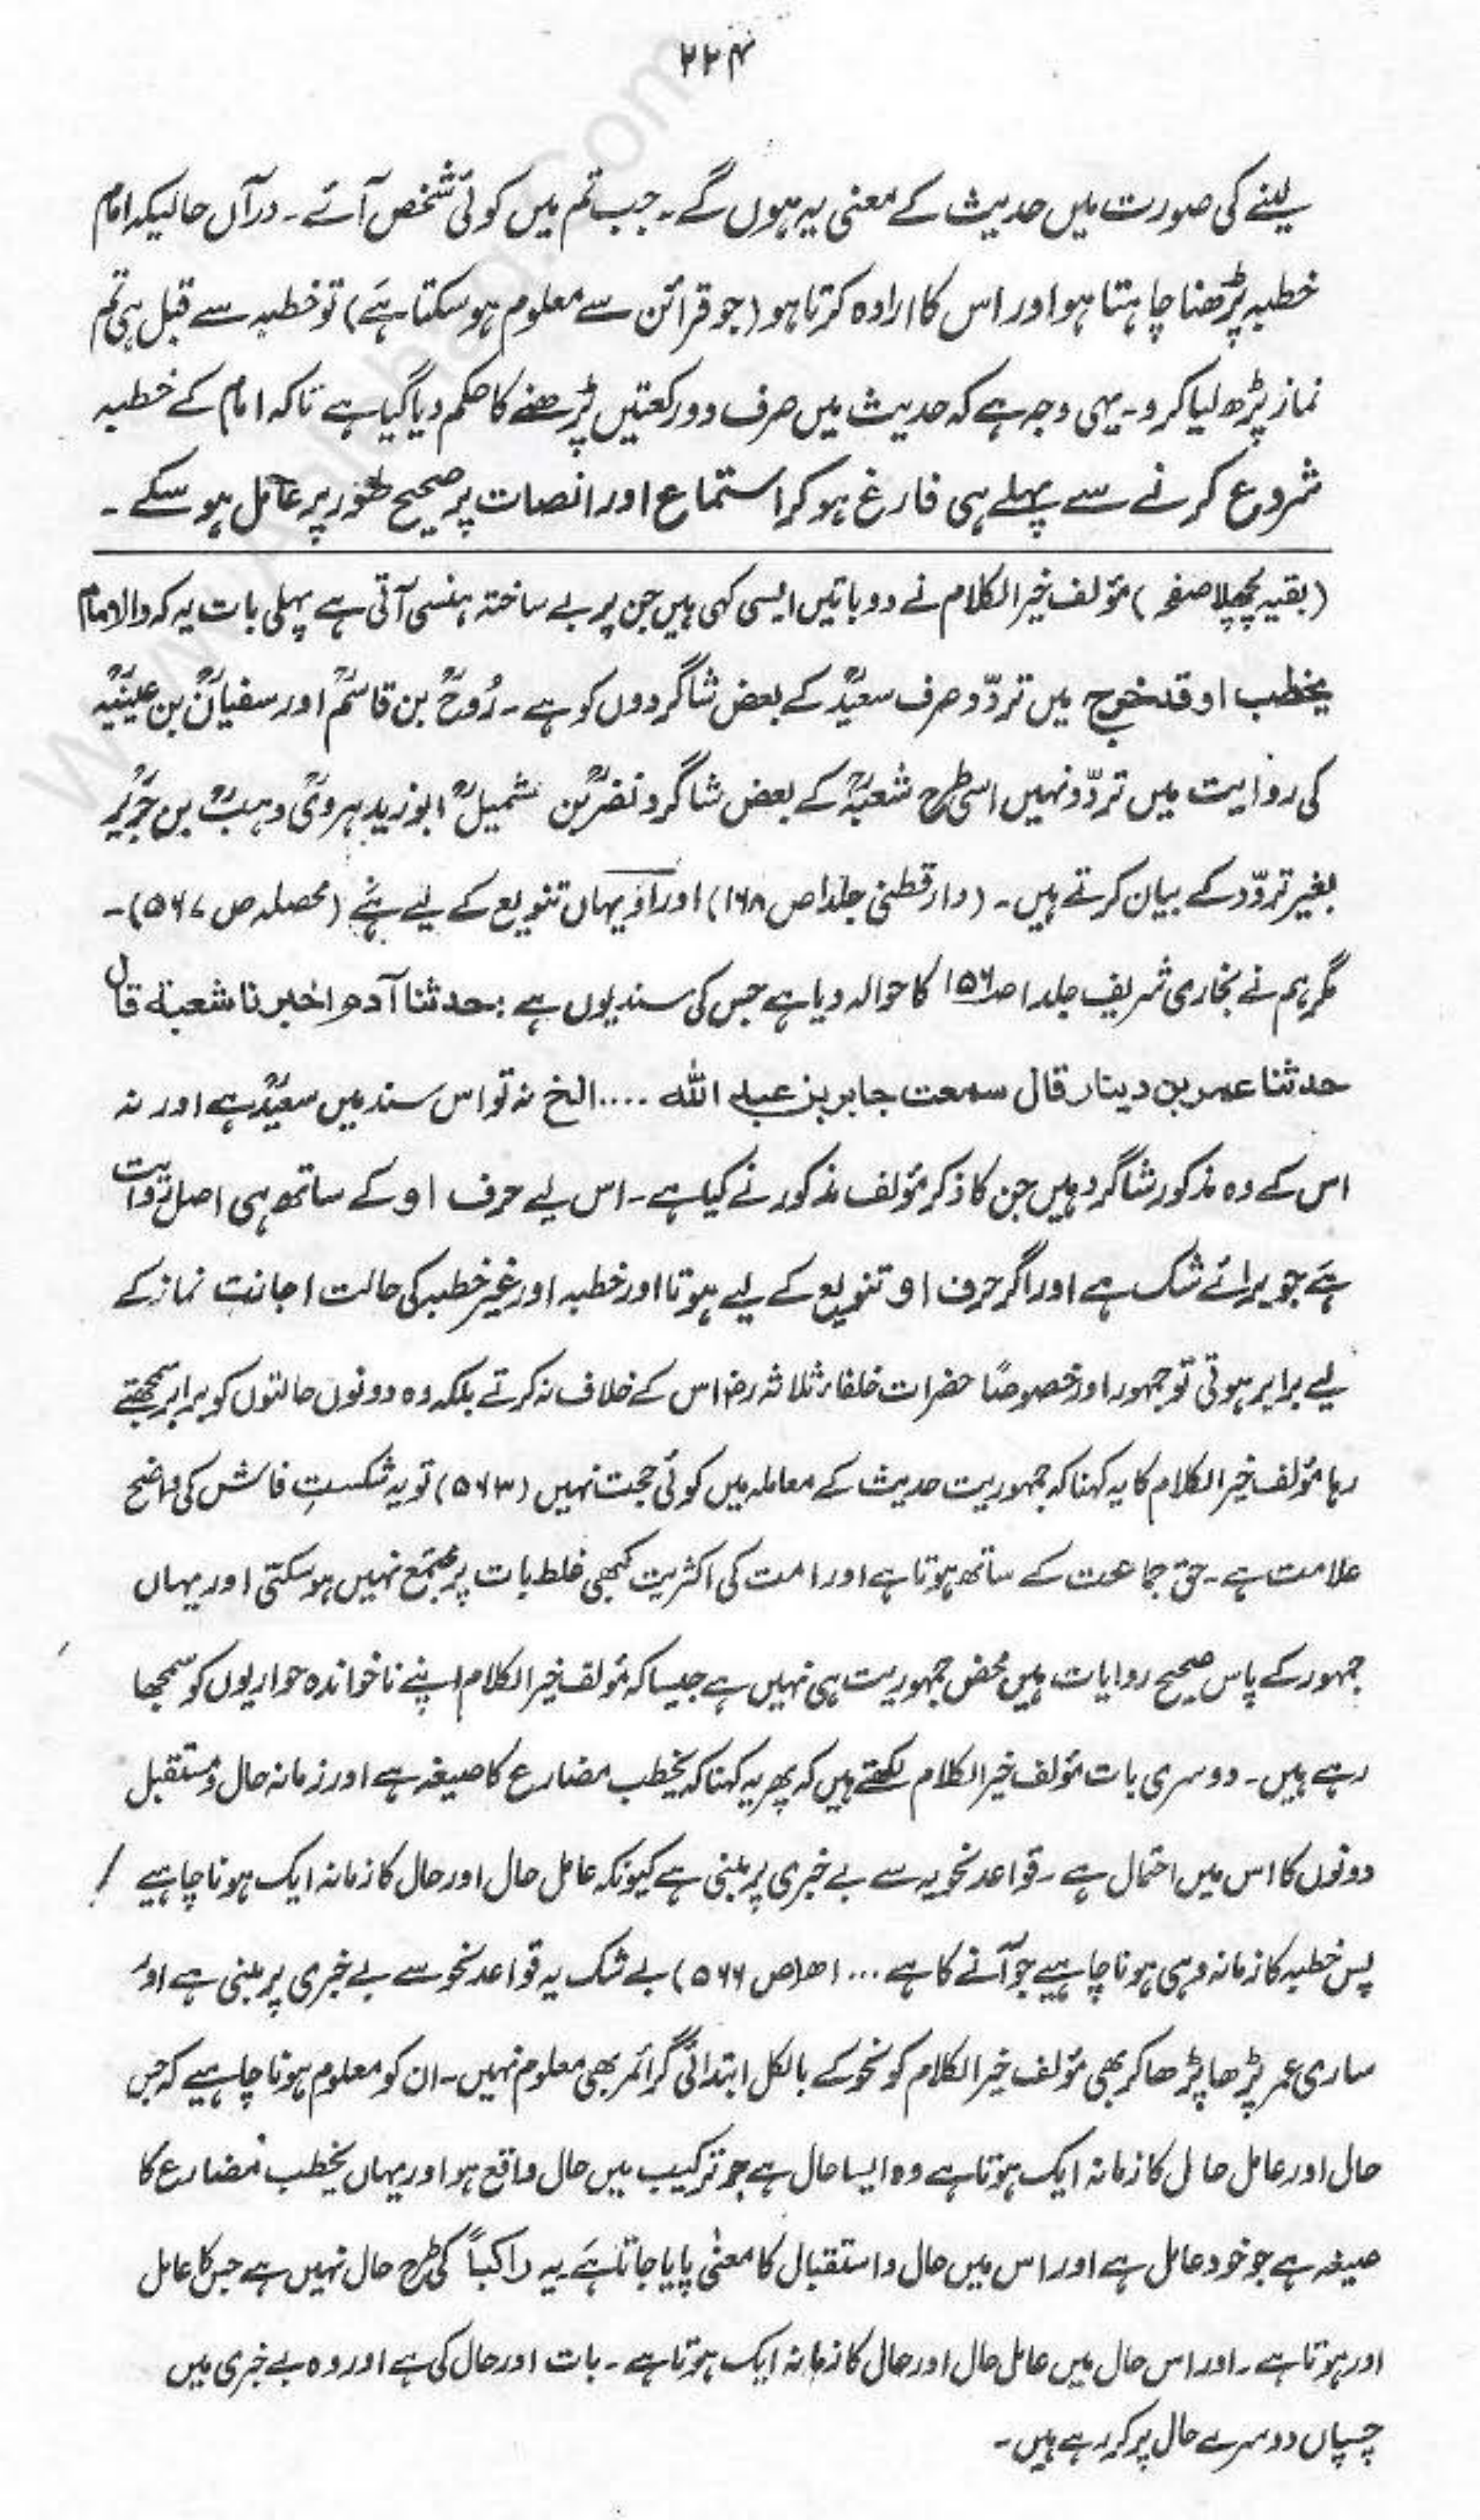 ۲۲۴
لینے کی صورت میں حدیث کے معنی یہ ہوں گے۔ جب تم میں کوئی شخص آئے۔ درآں حالیکہ امام
خطبہ پڑھنا چاہتا ہو اور اس کا ارادہ کرتا ہو (جو قرائن سے معلوم ہو سکتا ہے) تو خطبہ سے قبل ہی تم
نماز پڑھ لیا کرو۔ یہی وجہ ہے کہ حدیث میں صرف دو رکعتیں پڑھنے کا حکم دیا گیا ہے تاکہ امام کے خطبہ
شروع کرنے سے پہلے ہی فارغ ہو کر استماع اور انصات پر صحیح طور پر عامل ہو سکے۔
(بقیہ پچھلا صفحہ) مؤلف خیر الکلام نے دو باتیں ایسی کہی ہیں جن پر بے ساختہ ہنسی آتی ہے پہلی بات یہ کہ والامام
یخطب او قد خرج میں تردّد صرف سعیدؒ کے بعض شاگردوں کو ہے۔ رُوحؒ بن قاسمؒ اور سفیانؒ بن عیینہؒ
کی روایت میں تردّد نہیں اسی طرح شعبہؒ کے بعض شاگرد نضرؒ بن شمیلؒ ابو زید ہرویؒ وہبؒ بن جریرؒ
بغیر تردّد کے بیان کرتے ہیں۔ (دارقطنی جلد ۱ ص ۱۶۸) اور اَو یہاں تنویع کے لیے ہے (محصلہ ص ۵۶۷)۔
مگر ہم نے بخاری شریف جلد ۱ ص ۱۵۶ کا حوالہ دیا ہے جس کی سند یوں ہے : حدثنا آدم اخبرنا شعبة قال
حدثنا عمر بن دینار قال سمعت جابر بن عبد اللہ .....الخ نہ تو اس سند میں سعیدؒ ہے اور نہ
اس کے وہ مذکور شاگرد ہیں جن کا ذکر مؤلف مذکور نے کیا ہے۔ اس لیے حرف او کے ساتھ ہی اصل روایت
ہے جو برائے شک ہے اور اگر حرف او تنویع کے لیے ہوتا اور خطبہ اور غیر خطبہ کی حالت اجازت نماز کے
لیے برابر ہوتی تو جمہور اور خصوصًا حضرات خلفاء ثلاثہ رضؓ اس کے خلاف نہ کرتے بلکہ وہ دونوں حالتوں کو برابر سمجھتے
رہا مؤلف خیر الکلام کا یہ کہنا کہ جمہوریت حدیث کے معاملہ میں کوئی حجت نہیں (۵۶۳) تو یہ شکستِ فاش کی واضح
علامت ہے۔ حق جماعت کے ساتھ ہوتا ہے اور امت کی اکثریت کبھی غلط بات پر مجتمع نہیں ہو سکتی اور یہاں
جمہور کے پاس صحیح روایات ہیں محض جمہوریت ہی نہیں ہے جیسا کہ مؤلف خیر الکلام اپنے ناخواندہ حواریوں کو سمجھا
رہے ہیں۔ دوسری بات مؤلف خیر الکلام لکھتے ہیں کہ پھر یہ کہنا کہ یخطب مضارع کا صیغہ ہے اور زمانہ حال و مستقبل
دونوں کا اس میں احتمال ہے۔ قواعد نحویہ سے بے خبری پر مبنی ہے کیونکہ عامل حال اور حال کا زمانہ ایک ہونا چاہیے
پس خطبہ کا زمانہ وہی ہونا چاہیے جو آنے کا ہے ... اھ (ص ۵۶۶) بے شک یہ قواعد نحو سے بے خبری پر مبنی ہے اور
ساری عمر پڑھا پڑھا کر بھی مؤلف خیر الکلام کو نحو کے بالکل ابتدائی گرائمر بھی معلوم نہیں۔ ان کو معلوم ہونا چاہیے کہ جس
حال اور عامل حال کا زمانہ ایک ہوتا ہے وہ ایسا حال ہے جو ترکیب میں حال واقع ہو اور یہاں یخطب مضارع کا
صیغہ ہے جو خود عامل ہے اور اس میں حال و استقبال کا معنٰی پایا جاتا ہے یہ راکباً کی طرح حال نہیں ہے جس کا عامل
اور ہوتا ہے۔ اور اس حال میں عامل حال اور حال کا زمانہ ایک ہوتا ہے۔ بات اور حال کی ہے اور وہ بے خبری میں
چسپاں دوسرے حال پر کر رہے ہیں۔